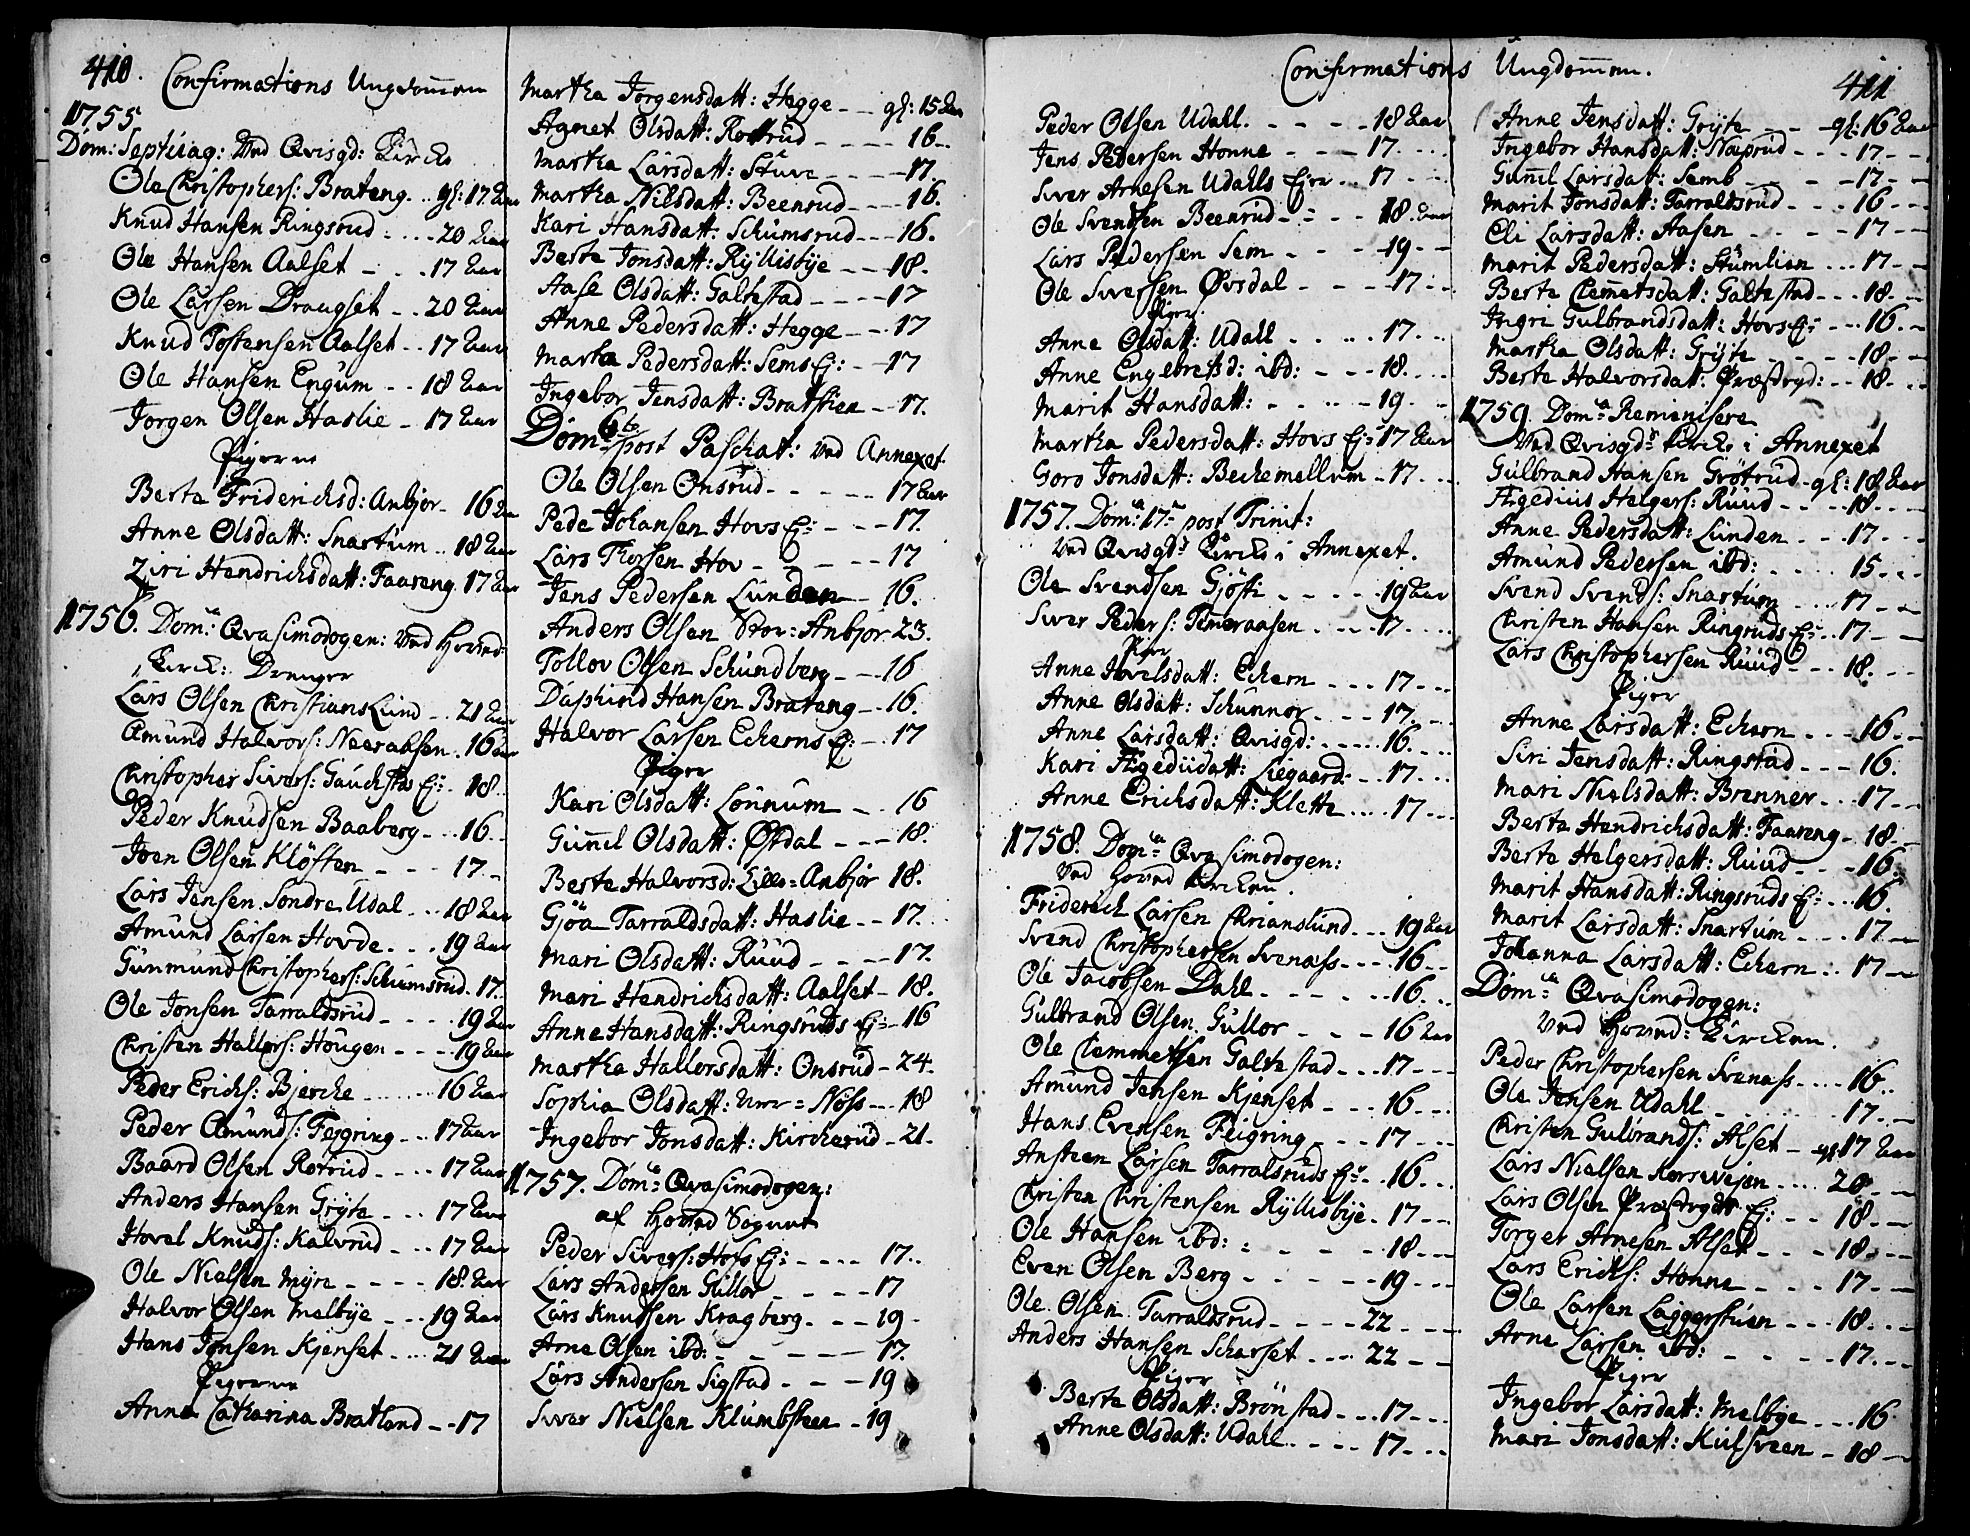 410. Confirmations Ungdommen
1755
Dom: Septuag: Ved Qvisgd: Kircke
Ole Christophers: Brateng .. gl: 17 Aar
Knud Hansen Ringsrud .... 20 Aar
Ole Hansen Aalset - . . 17 Aar
Ole Larsen Draugset . . 20 Aar
Knud Tostensen Aalset . . 17 Aar
Ole Hansen Engum - . 18 Aar
Jorgen Olsen Haslie - 17 Aar
Pigerne
Berte Friderichsd: Anbjor - 16 Aar
Anne Olsdatt: Snartum .. 18 Aar
Ziri Hendrichsdatt: Faareng 17 Aar
1756. Dom: Qvasimodogen: Ved Hovind
Kirck: Drenger
Lars Olsen Christianslund .. 21 Aar
Amund Halvors: Neeraasen . 16 Aar
Christopher Sivers: Gauchstad Ej: - 18
Peder Knudsen Baaberg - .. 16 -
Joen Olsen Klöften - - - 17 -
Lars Jensen Sondre Udal ... 18 Aar
Amund Larsen Hovde . . . 19 Aar
Gunmund Christophers: Schumsrud . 17.
Ole Jonsen Tarraldsrud - - - . 19 Aar
Christen Hallors: Hougen - - - - 19 Aar
Peder Erichs: Bjercke ...... 16 Aar
Peder Amunds: Fejgring - .. 17 Aar
Baard Olsen Rotrud - - - . 17 Aar
Anders Hansen Gryte - . . 17 Aar
Hovel Knuds: Kalvrud - - . . 17 Aar
Ole Nielsen Myre - - - - 18 Aar
Halvor Olsen Melbye - - . 19 Aar
Hans Jonsen Kjenset . . . . 21 Aar
Pigerne
Anne Catharina Bratland - - 17
Martha Jorgensdatt: Hegge - - gl: 15 Aar
Agnet Olsdatt: Rottrud - - - - 16 -
Martha Larsdatt: Stuve - - - - 17.
Martha Nilsdatt: Beenrud - - - 16.
Kari Hansdatt: Schumsrud - - - 16.
Berte Jonsdatt: Ryllisbye - - 18.
Aase Olsdatt: Galtestad - - - - 17
Anne Pedersdatt: Hegge - - - 17
Martha Pedersdatt: Sems Ej: - 17
Ingebor Jensdatt: Bratlien - - 17.
Dom: 6te post Paschat: Ved Annexet
Ole Olsen Onsrud - - - - - 17 Aar
Pede Johansen Hovs Ej: - - - 17.
Lars Thorsen Hov - - - - 17
Jens Pedersen Lunden - 16.
Anders Olsen Stor = Anbjor 23.
Tollov Olsen Schundberg - - 16
Daphind Hansen Brateng - . 16.
Halvor Larsen Echerns Ej: - 17
Piger
Kari Olsdatt: Lönnum - . 16
Gunnil Olsdatt: Ofdal - - - 18.
Berte Halvorsd: Lille = Anbjor 18.
Gjöa Tarraldsdatt: Haslie - - 17.
Mari Olsdatt: Ruud - - - - 17.
Mari Hendrichsdatt: Aalset - 18.
Anne Hansdatt: Ringsruds Ej: - 16
Martha Hallorsdatt: Onsrud - 24.
Sophia Olsdatt: = Nöss - - 18
Ingebor Jonsdatt: Kircherud - 21.
1757. Dom: Qvasimodogen:
af Hovind Sogn
Peder Sivers: Hofs Ej: - - - - 17..
Lars Andersen Gullor - - - - 17
Lars Knudsen Kragberg. - - - 19.
Arne Olsen ibd: - - - - - 17.
Lars Andersen Sigstad - - - 19
Siver Nielsen Klumbsteen - 19
Confirmations Ungdommen. 411
Peder Olsen Udall. - - - - 18 Aar
Jens Pedersen Honne - - - 17. ...
Siver Arnesen Udahls Ejer ... 17 ...
Ole Svendsen Beenrud - - - - 18. Aar
Lars Pedersen Sem - . - - 19 - -
Ole Siversen Øvsdal - - - - 17 - -
Piger
Anne Olsdatt: Udall - . . . . 17 ...
Anne Engebretsd: ibd: - - - 18. ...
Marit Hansdatt: - - . . - 19 - -
Martha Pedersdatt: Hovs Ej: 17 Aar
Goro Jonsdatt: Beckemellum - 17. ...
1757. Dom: 17. post Trinit:
Ved Qvisgd: Kircke i Annexet.
Ole Svendsen Gjösti - - - - - 19 Aar
Siver Peders: Temeraasen . . . . 17. ...
Piger
Anne Hovelsdatt: Echern - - . 17 - ..
Anne Olsdatt: Schunnor . . . . 17. - -
Anne Larsdatt: Qvisgd: . . . . . 16. ...
Kari Ægediidatt: Liegaard. - . 17. ...
Anne Erichsdatt: Klette . . . . 17. - -
1758. Dom: Qvasimodogen:
Ved Hovind Kircken.
Friderich Larsen Chrianslund . . . 19 Aar
Svend Christophersen Svenass - - . 16 - -
Ole Jacobsen Dahl . - - - . . 16. ..
Gulbrand Olsen Gullor - - - 16 Aar
Ole Clemmetsen Galtestad . . . 17 - - -
Amund Jensen Kjenset - - . 16 - ..
Hans Evensen Feigring . - - . 17 - - -
Ansteen Larsen Tarralsruds Ej: - . 16. ...
Christen Christensen Ryllisbye . 17 - - -
Ole Hansen ibd: - - - - - 18 - - -
Even Olsen Berg - - - - - - 19 - - -
Ole Olsen Tarraldsrud - - - - 22 - - - -
Anders Hansen Scharset . . . . 22 - - -
Piger
Berte Olsdatt: Brönstad - - . 17 - ..
Anne Olsdatt: Udahl . - - - 17 - ..
Anne Jensdatt: Gryte - - - gl: 16 Aar
Ingebor Hansdatt: Næprud - - . 17 - - -
Gunnil Larsdatt: Semb - - - - 17 - -
Marit Jonsdatt: Tarraldsrud - - - 16 - - -
Eli Larsdatt: Aasen - - - - 17 - -
Marit Pedersdatt: Stumlien . . . 17 - -
Berte Clemetsdatt: Galtestad - - . 18. -
Ingri Gulbrandsdatt: Hovs Ej: - - . 16. - -
Martha Olsdatt: Gryte - - - - 18 - -
Berte Halvorsdatt: Præstegd: - - 18. ..
1759. Dom: Reminiscere
Ved Qvisgd: Kircke i Annexet
Gulbrand Hansen Grötrud - gl: 18 Aar
Ægedius Helgers: Ruud - - - . 18. ...
Anne Pedersdatt: Lunden . . . 17 - - .
Amund Pedersen ibd: . . . . 15 - . .
Svend Svends: Snartum . . . . 17 - -
Christen Hansen Ringruds Ej: . . 17. - -
Lars Christophersen Ruud - - - 18. - -
Piger
Anne Larsdatt: Echern . . . . 16. - -
Siri Jensdatt: Ringstad - - - 16.
Mari Nielsdatt: Brenner . . . 17 - -
Berte Hendrichsdatt: Faareng - 18 - -
Berte Helgersdatt: Ruud - - - 16.
Marit Hansdatt: Ringsruds Ej: . . . 16.
Marit Larsdatt: Snartum . . . . 17 - -
Johanna Larsdatt: Echern . . 17 - -
Dom: Qvasimodogen:
Ved Hovind: Kircken.
Peder Christophersen Svenass . . . . 16. .
Ole Jensen Udahl - - - - . 17. - -
Christen Gulbrands: Alset - gl: 17 Aar
Lars Nielsen Korsvejen . . . . 20. - -
Lars Olsen Præstegdt Ej: . - - 18 - -
Torger Arnesen Alset - - - 18. - -
Lars Erichs: Honne - - - - 17. - -
Ole Larsen Laggerstuen - - - 18. - -
Arne Larsen ibd: - - - - 17. - -
Piger
Ingebor Larsdatt: Melbye . . . . 16.
Mari Jonsdatt: Kulsveen - 18 - -